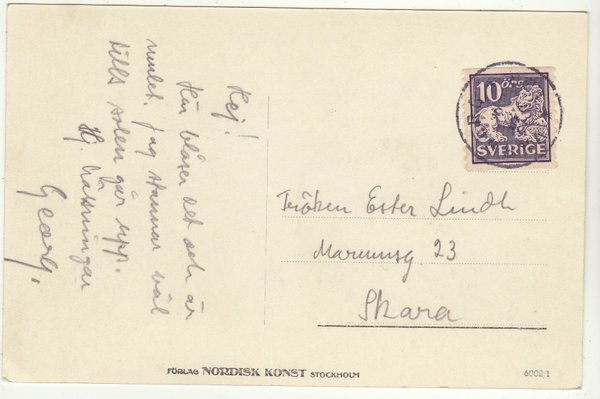 Hej!
Här blåser det och är
mulet. Jag stannar väl
tills solen går upp.
Hj. hälsningar
Georg.
10 ÖRE
SVERIGE
Fröken Ester Lindh
Marumsg. 23
Skara
FÖRLAG NORDISK KONST STOCKHOLM
6002/1